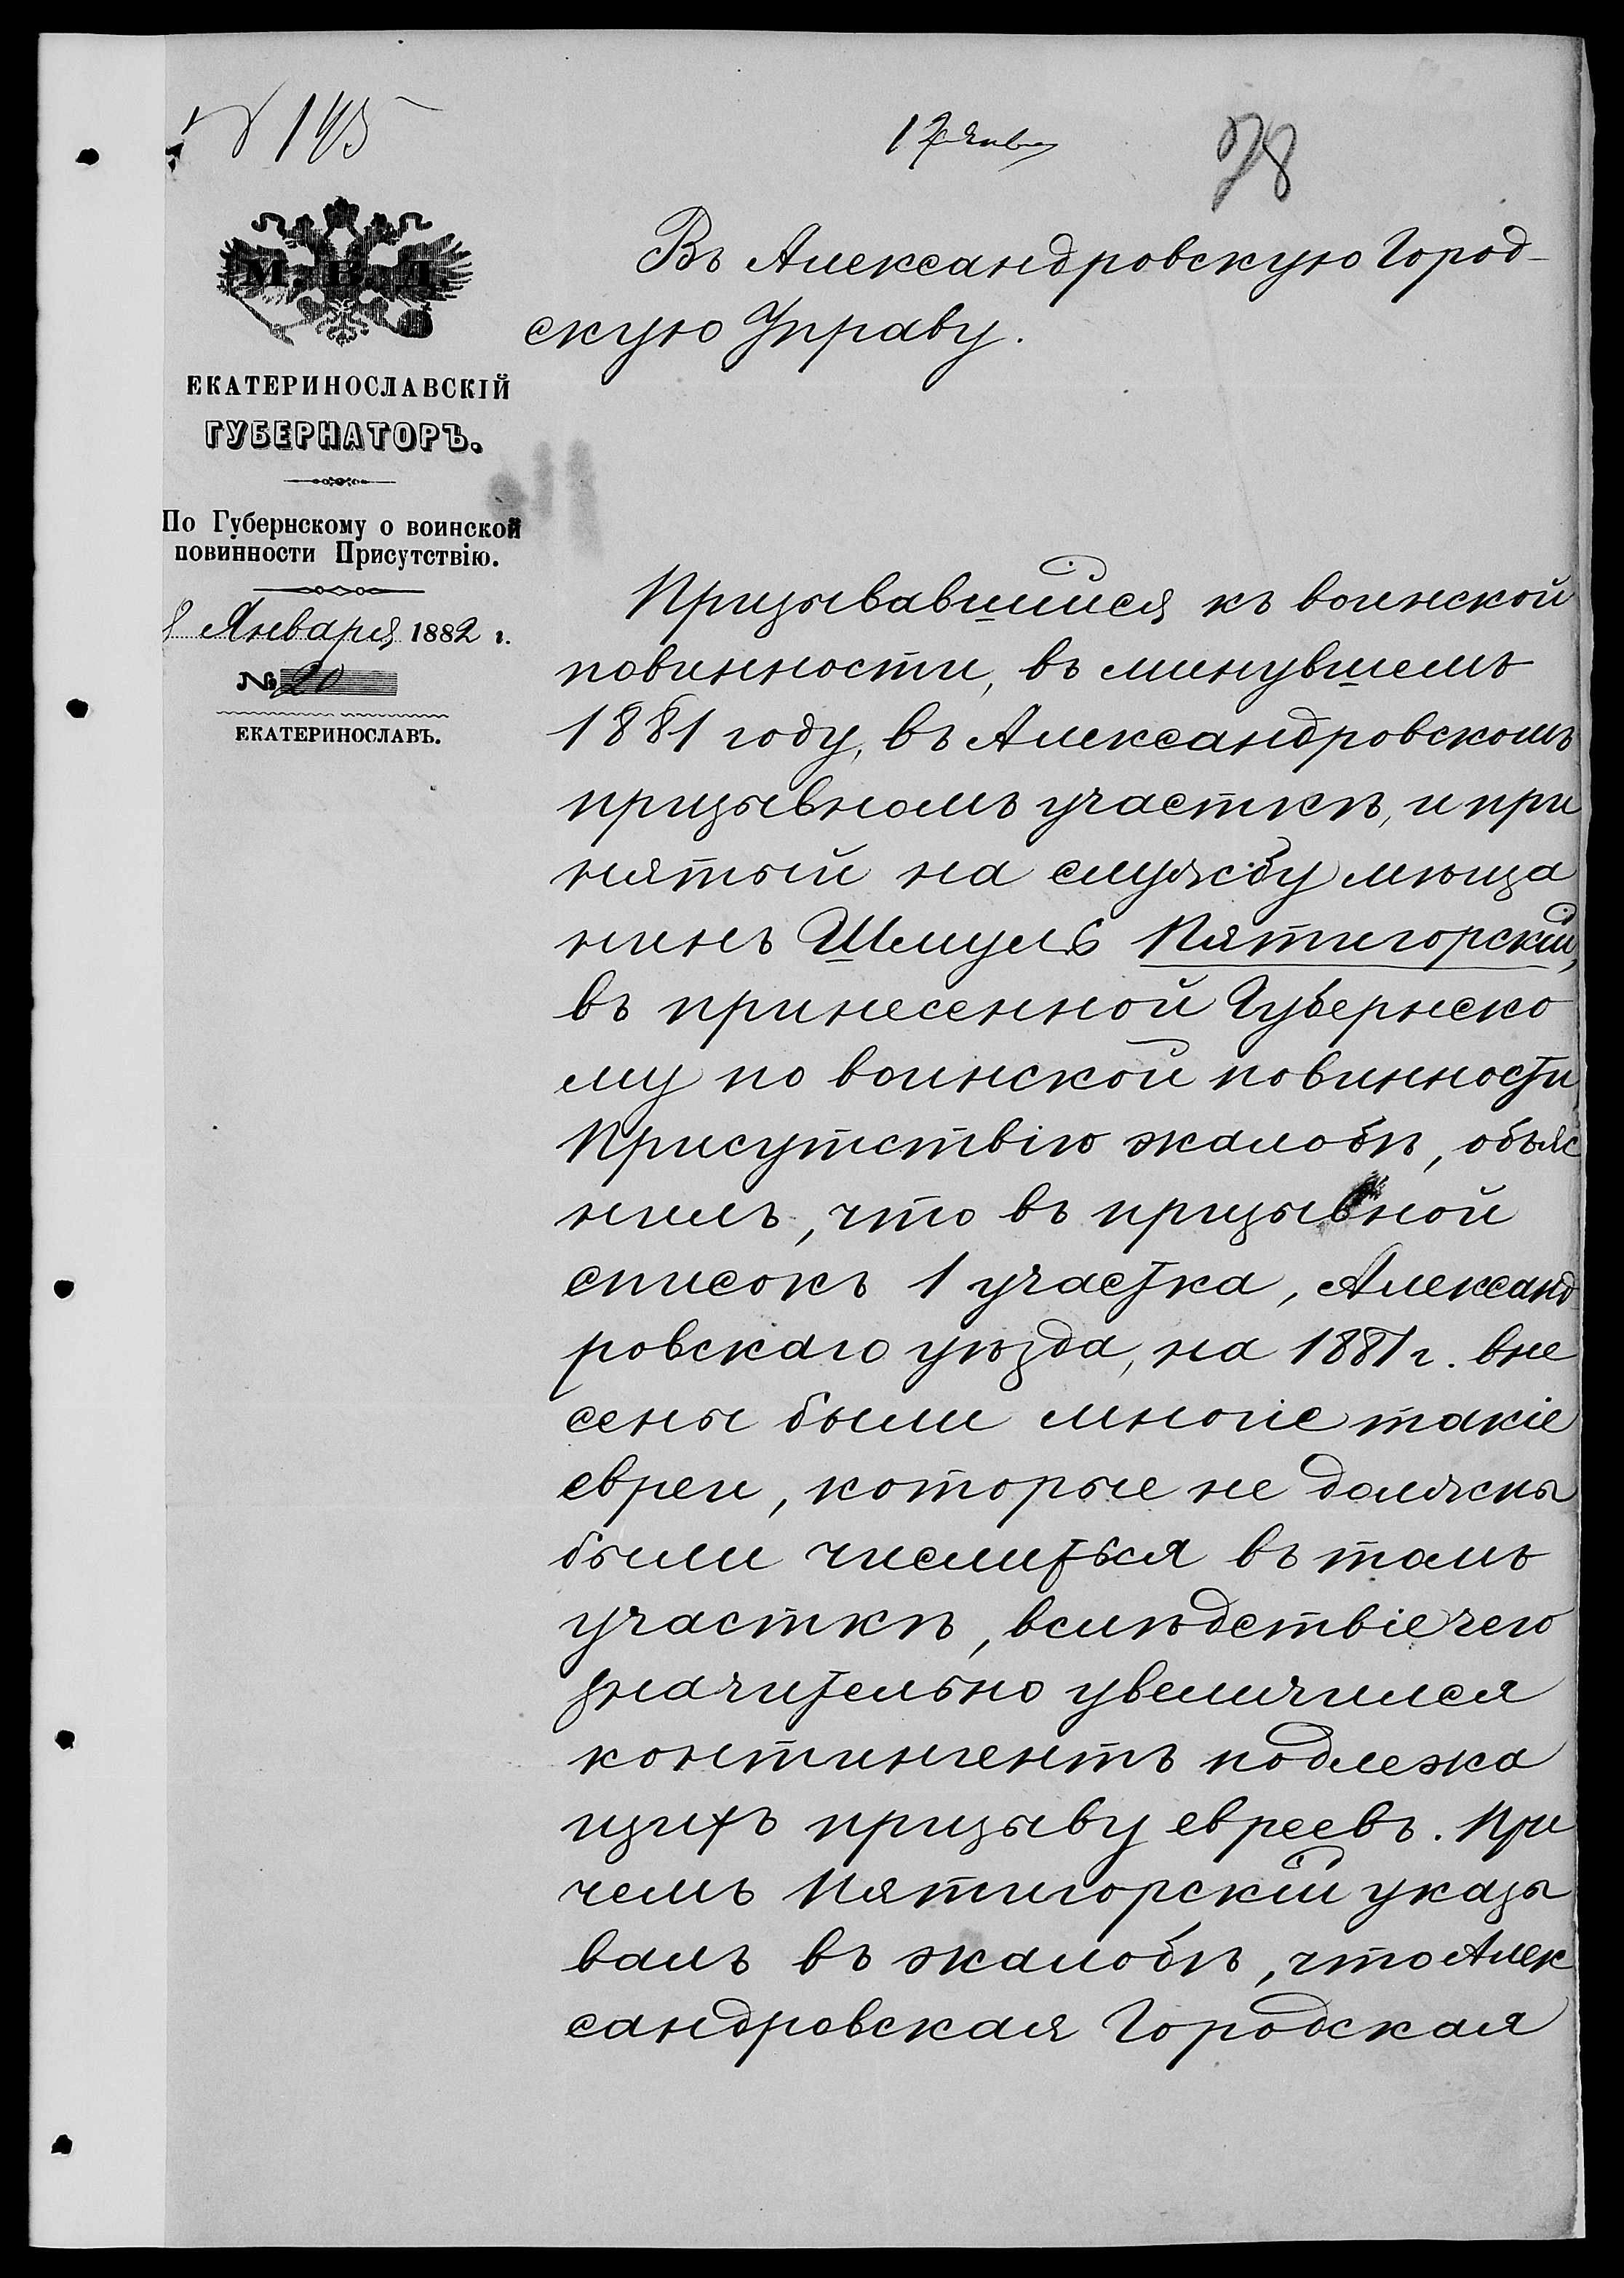 № 145
12 Янв
78
М. В. Д.
ЕКАТЕРИНОСЛАВСКІЙ
ГУБЕРНАТОРЪ.
По Губернскому о воинской
повинности Присутствію.
8 Января 1882 г.
№ 20
ЕКАТЕРИНОСЛАВЪ.
Въ Александровскую Город-
скую Управу.
Призывавшійся къ воинской
повинности, въ минувшемъ
1881 году, въ Александровскомъ
призывномъ участкѣ, и при
нятый на службу мѣща
нинъ Шмуль Пятигорскій,
въ принесенной Губернско
му по воинской повинности
Присутствію жалобѣ, объяс
нилъ, что въ призывной
списокъ 1 участка, Александ
ровскаго уѣзда, на 1881 г. вне
сены были многіе такіе
евреи, которые не должны
были числиться въ томъ
участкѣ, вслѣдствіе чего
значительно увеличился
контингентъ подлежа
щихъ призыву евреевъ. При
чемъ Пятигорскій указы
валъ въ жалобѣ, что Алек
сандровская Городская